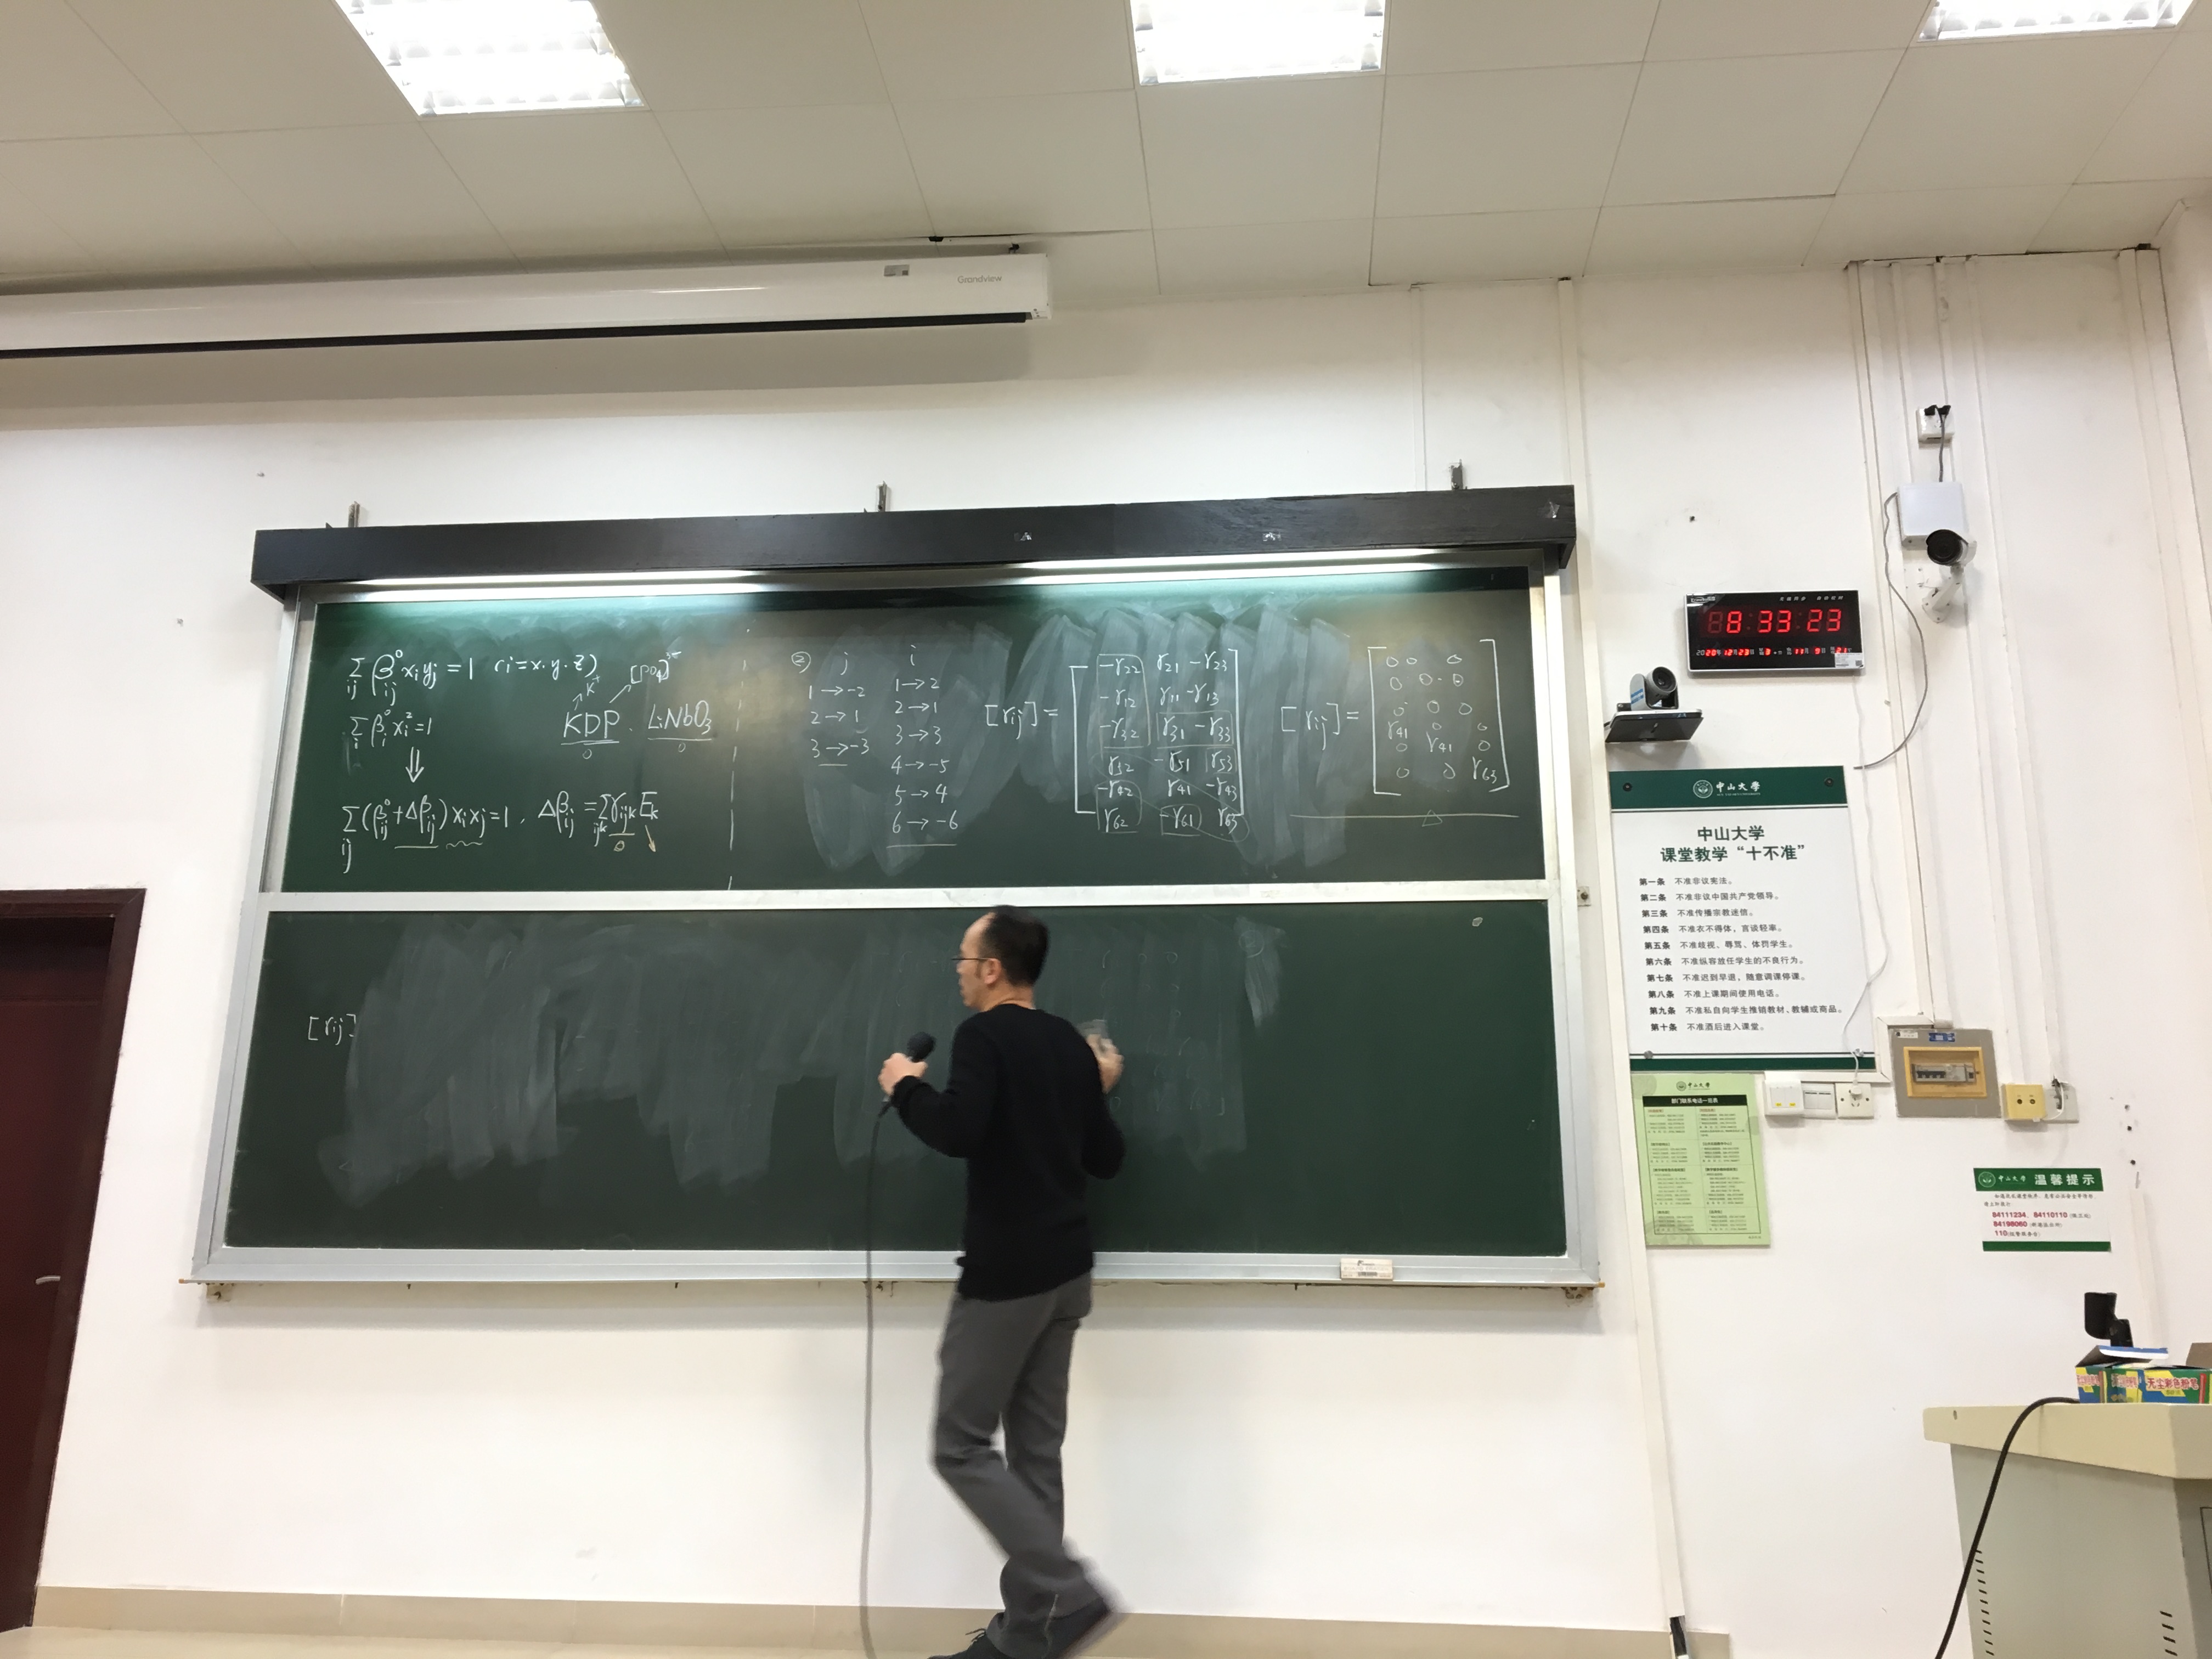 Grandview
∑ij β⁰ij xi yj = 1 (i = x. y. z)
∑i β⁰i xi² = 1
⇓
∑ij (β⁰ij + Δβij) xi xj = 1 , Δβij = ∑ijk γijk Ek
K⁺ [PO4]³⁻
KDP . LiNbO3
② j i
1 → -2 1 → 2
2 → 1 2 → 1
3 → -3 3 → 3
4 → -5
5 → 4
6 → -6
[γij] =
-γ22 γ21 -γ23
-γ12 γ11 -γ13
-γ32 γ31 -γ33
γ52 -γ51 γ53
-γ42 γ41 -γ43
γ62 -γ61 γ63
[γij] =
0 0 0
0 0 0
0 0 0
γ41 0 0
0 γ41 0
0 0 γ63
△
[γij]
8:33 23
中山大学
中山大学
课堂教学“十不准”
第一条 不准非议宪法。
第二条 不准非议中国共产党领导。
第三条 不准传播宗教迷信。
第四条 不准衣不得体，言谈轻率。
第五条 不准歧视、辱骂、体罚学生。
第六条 不准纵容放任学生的不良行为。
第七条 不准迟到早退，随意调课停课。
第八条 不准上课期间使用电话。
第九条 不准私自向学生推销教材、教辅或商品。
第十条 不准酒后进入课堂。
中山大学
部门联系电话一览表
中山大学 温馨提示
84111234、84110110
84198060
110
无尘彩色粉笔